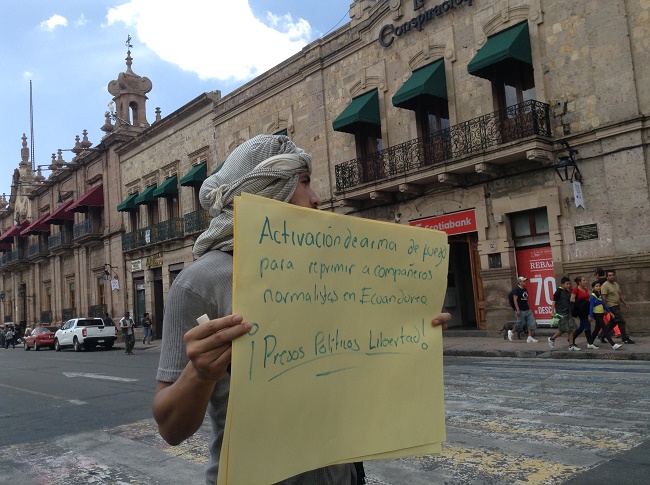 Conspiración
Scotiabank
REBAJ
70
Activación de arma de fuego
para reprimir a compañeros
normalistas en Ecuandureo
¡Presos Políticos Libertad!